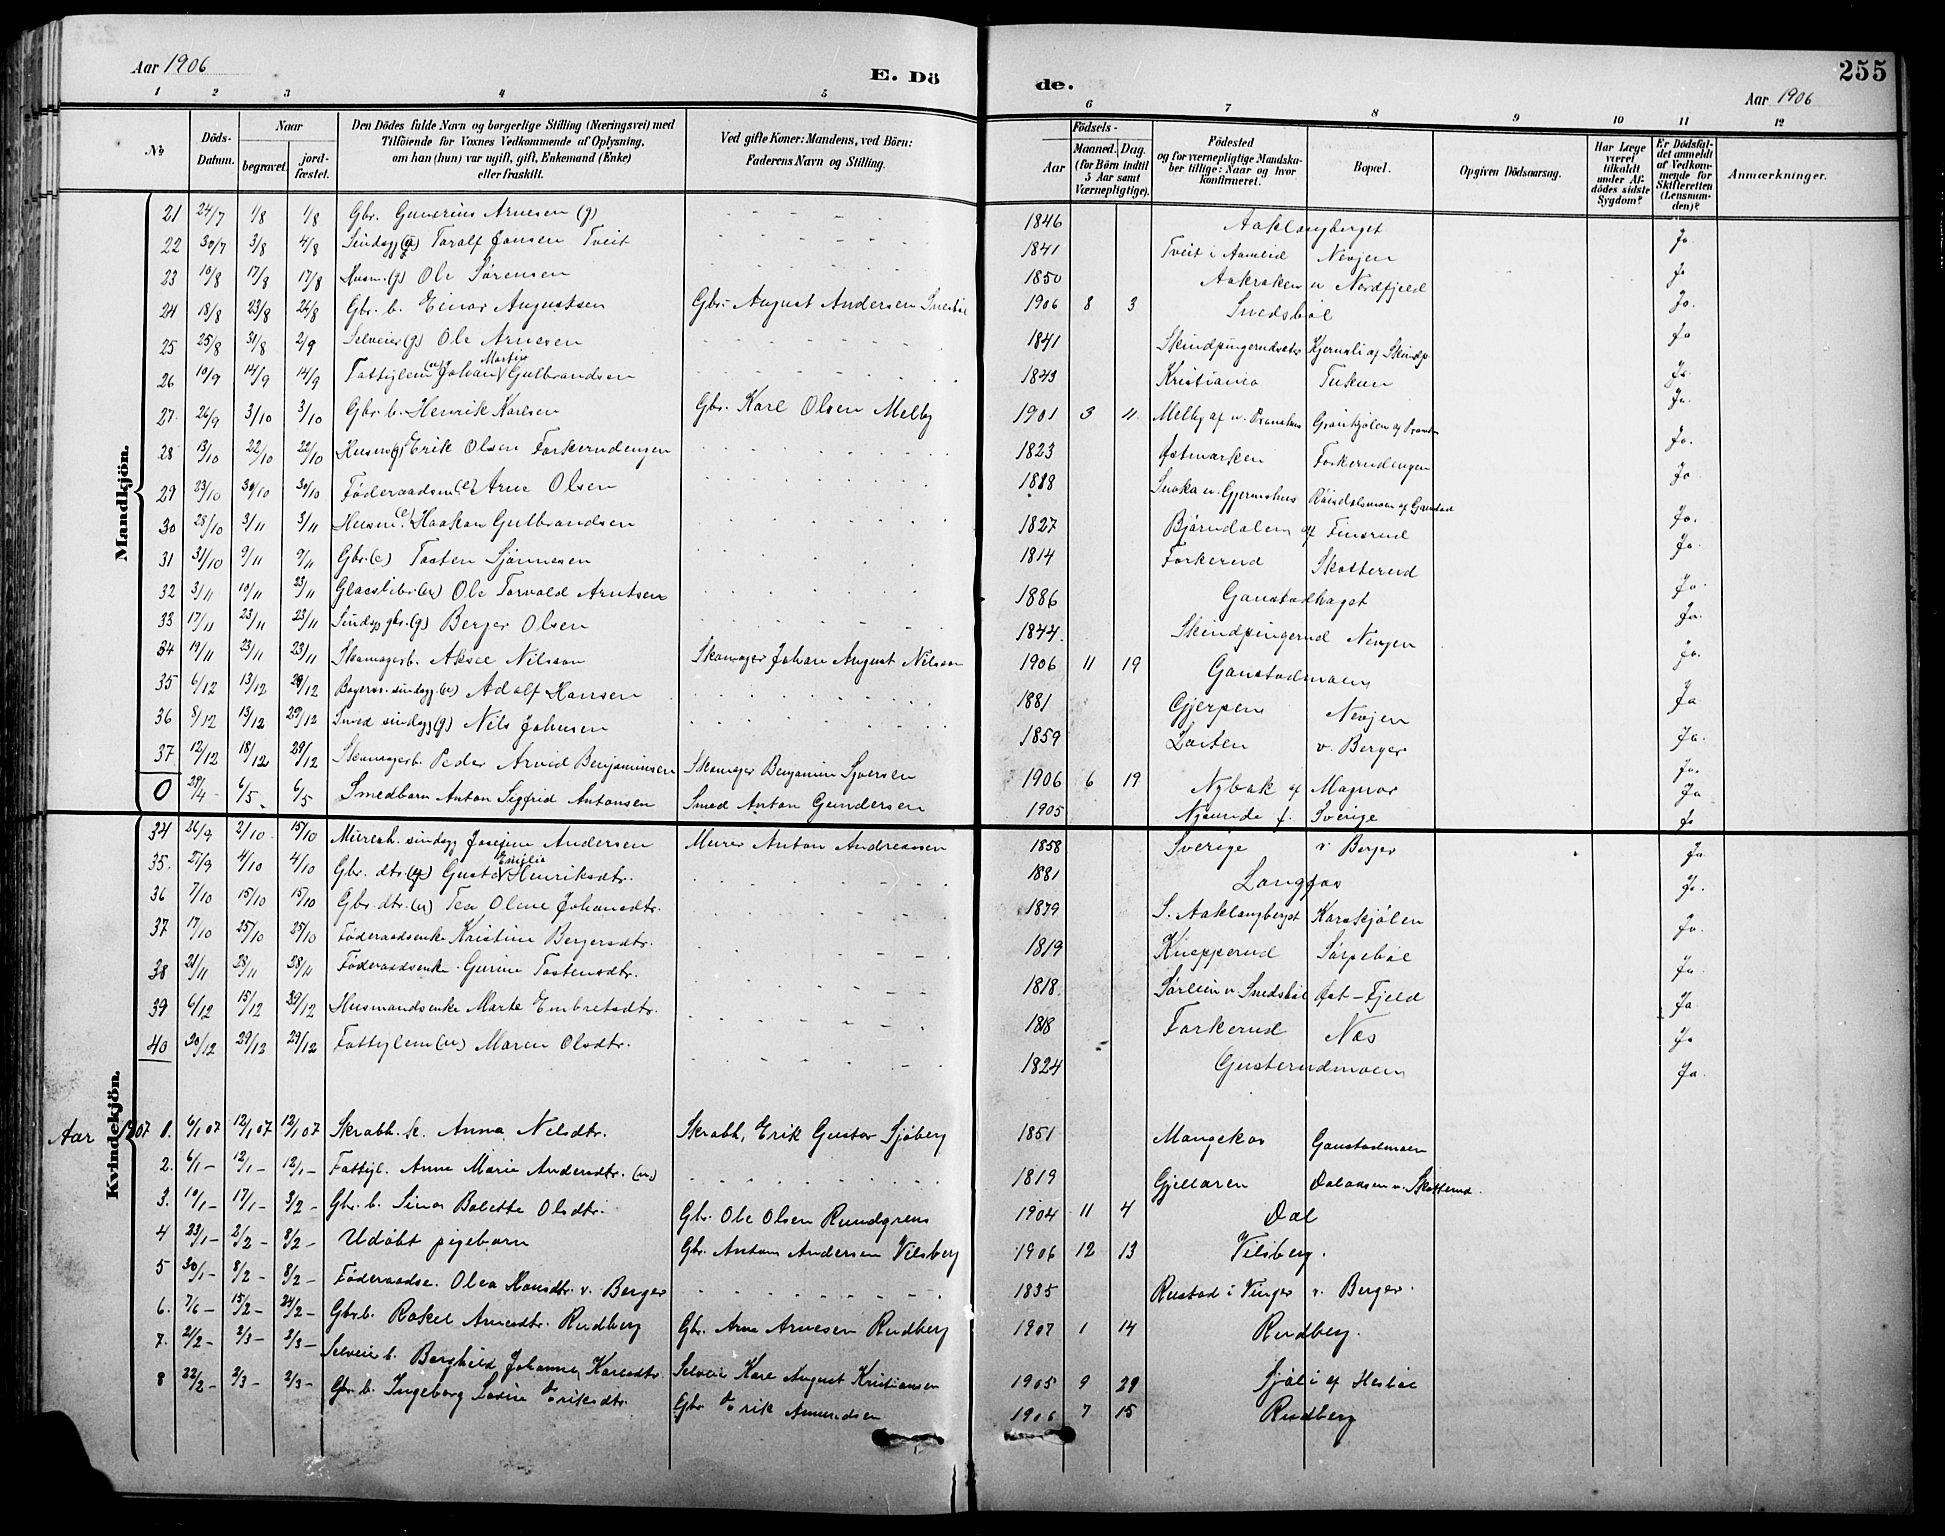 Aar 1906
E. Dö
de.
255
Aar 1906
1 2 3 4 5 6 7 8 9 10 11 12
No
Döds-Datum.
Naar
begravet.
jord-fæstet.
Den Dödes fulde Navn og borgerlige Stilling (Næringsvei) med
Tilföiende for Voxnes Vedkommende af Oplysning,
om han (hun) var ugift, gift, Enkemand (Enke)
eller fraskilt.
Ved gifte Koner: Mandens, ved Börn:
Faderens Navn og Stilling.
Födsels-
Aar
Maaned. Dag.
(for Börn indtil
5 Aar samt
Værnepligtige).
Födested
og for værnepligtige Mandska-
ber tillige: Naar og hvor
konfirmeret.
Bopæl.
Opgiven Dödsaarsag.
Har Læge
været
tilkaldt
under Af-
dödes sidste
Sygdom?
Er Dödsfal-
det anmeldt
af Vedkom-
mende for
Skifteretten
(Lensman-
den)?
Anmærkninger.
Mandkjön.
21 24/7 1/8 1/8 Gbr. Gunerius Arnesen (g) 1846 Aaklangberget Ja
22 30/7 3/8 4/8 Toralf Jansen Tveit 1841 Tveit i Aamlid Nevjen Ja
23 10/8 17/8 17/8 Husm. (g) Ole Sørensen 1850 Aakroken u. Nordfjeld Ja
24 18/8 23/8 26/8 Gbr. b. Einar Augustsen Gbr. August Andersen 1906 8 3 Smedsbøl Ja
25 25/8 31/8 2/9 Selveier (g) Ole Arnesen 1841 Ja
26 10/9 14/9 14/9 Johan Martin Gulbrandsen 1843 Kristiania Ja
27. 26/9 3/10 3/10 Gbr. b. Henrik Karlsen Gbr. Karl Olsen Melby 1901 3 11 Melby Ja
28 13/10 22/10 22/10 Erik Olsen Forkerudengen 1823 Østmarken Forkerudengen Ja
29 23/10 30/10 30/10 Arne Olsen Ja
30 28/10 3/11 3/11 Husm. (e) Haakon Gulbrandsen 1827 Bjørndalen af Finsrud Ja
31 31/10 9/11 9/11 Gbr. (e) 1814 Forkerud Skotterud Ja
32 3/11 10/11 23/11 Ole Torvald Arntsen 1886 Gaustadhaget Ja
33 17/11 23/11 23/11 (g) Berger Olsen 1844 Skindpingerud Nevjen Ja
34 19/11 23/11 23/11 Skomagerb. Aksel Nilsson Skomager Johan August Nilsson 1906 11 19 Gaustadmoen Ja
35 6/12 13/12 29/12 Adolf Hansen 1881 Gjerpen Nevjen Ja
36 8/12 13/12 29/12 Smed Nils Johnsen 1859 v. Berger Ja
37 12/12 18/12 29/12 Skomagerb. Peder Arvid Benjaminsen Skomager Benjamin Syversen 1906 6 19 Nybak af Magnor Ja
0 29/4 6/5 6/5 Smedbarn Anton Sigfrid Antonsen Smed Anton Gundersen 1905 Sverige Ja
Kvindekjön.
34 26/9 2/10 15/10 Josefine Andersen Murer Anton Andreassen 1858 Sverige v. Berger Ja
35. 27/9 4/10 4/10 Gbr. dtr. Gusta Emilie Henriksdtr. 1881 Langfos Ja
36 7/10 15/10 15/10 Gbr. dtr. (u) Tea Oline Johansdtr. 1879 S. Aaklangberget Karskjølen Ja
37 17/10 25/10 25/10 Føderaadsenke Kristine Bergersdtr. 1819 Knepperud Sørpebøl Ja
38 21/11 28/11 28/11 Føderaadsenke Gurine Tostensdtr. 1818 Sørlien u. Smedsbøl Øst-Fjeld Ja
39 6/12 15/12 29/12 Husmandsenke Marte Embretsdtr. 1818 Forkerud Næs Ja
40 20/12 29/12 29/12 Fattiglem (u) Maren Olsdtr. 1824 Gusterudmoen Ja
Aar 1907
1. 6/1 07 12/1 07 12/1 07 Anna Nilsdtr. Erik Gustav Sjøberg 1851 Mangskog Gaustadmoen
2. 6/1 - 12/1 - 12/1 - Fattigl. Anne Marie Andersdtr. (u) 1819 Gjellaren Skotterud
3. 10/1 - 17/1 - 3/2 - Gbr. b. Sina Bolette Olsdtr. Gbr. Ole Olsen Rundgrens 1904 11 4 Dal
4 23/1 - 2/2 - 8/2 - Udøbt pigebarn Gbr. Anton Andersen Vilsberg 1906 12 13 Vilsberg.
5 30/1 - 8/2 - 8/2 - Føderaadse. Olea Hansdtr. v. Berger 1835 Rustad i Vinger v. Berger.
6. 7/6 - 15/2 - 24/2 - Gbr. b. Rakel Arnesdtr. Rudberg Gbr. Arne Arnesen Rudberg 1907 1 14 Rudberg.
7. 21/2 - 2/3 - 2/3 - Selveier b. Borghild Johanne Karlsdtr. Selveier Karl August Kristiansen 1905 9 29
8 22/2 - 2/3 - 2/3 - Gbr. b. Ingeborg Lovise Eriksdtr. Gbr. Erik Amundsen 1906 7 15 Rudberg